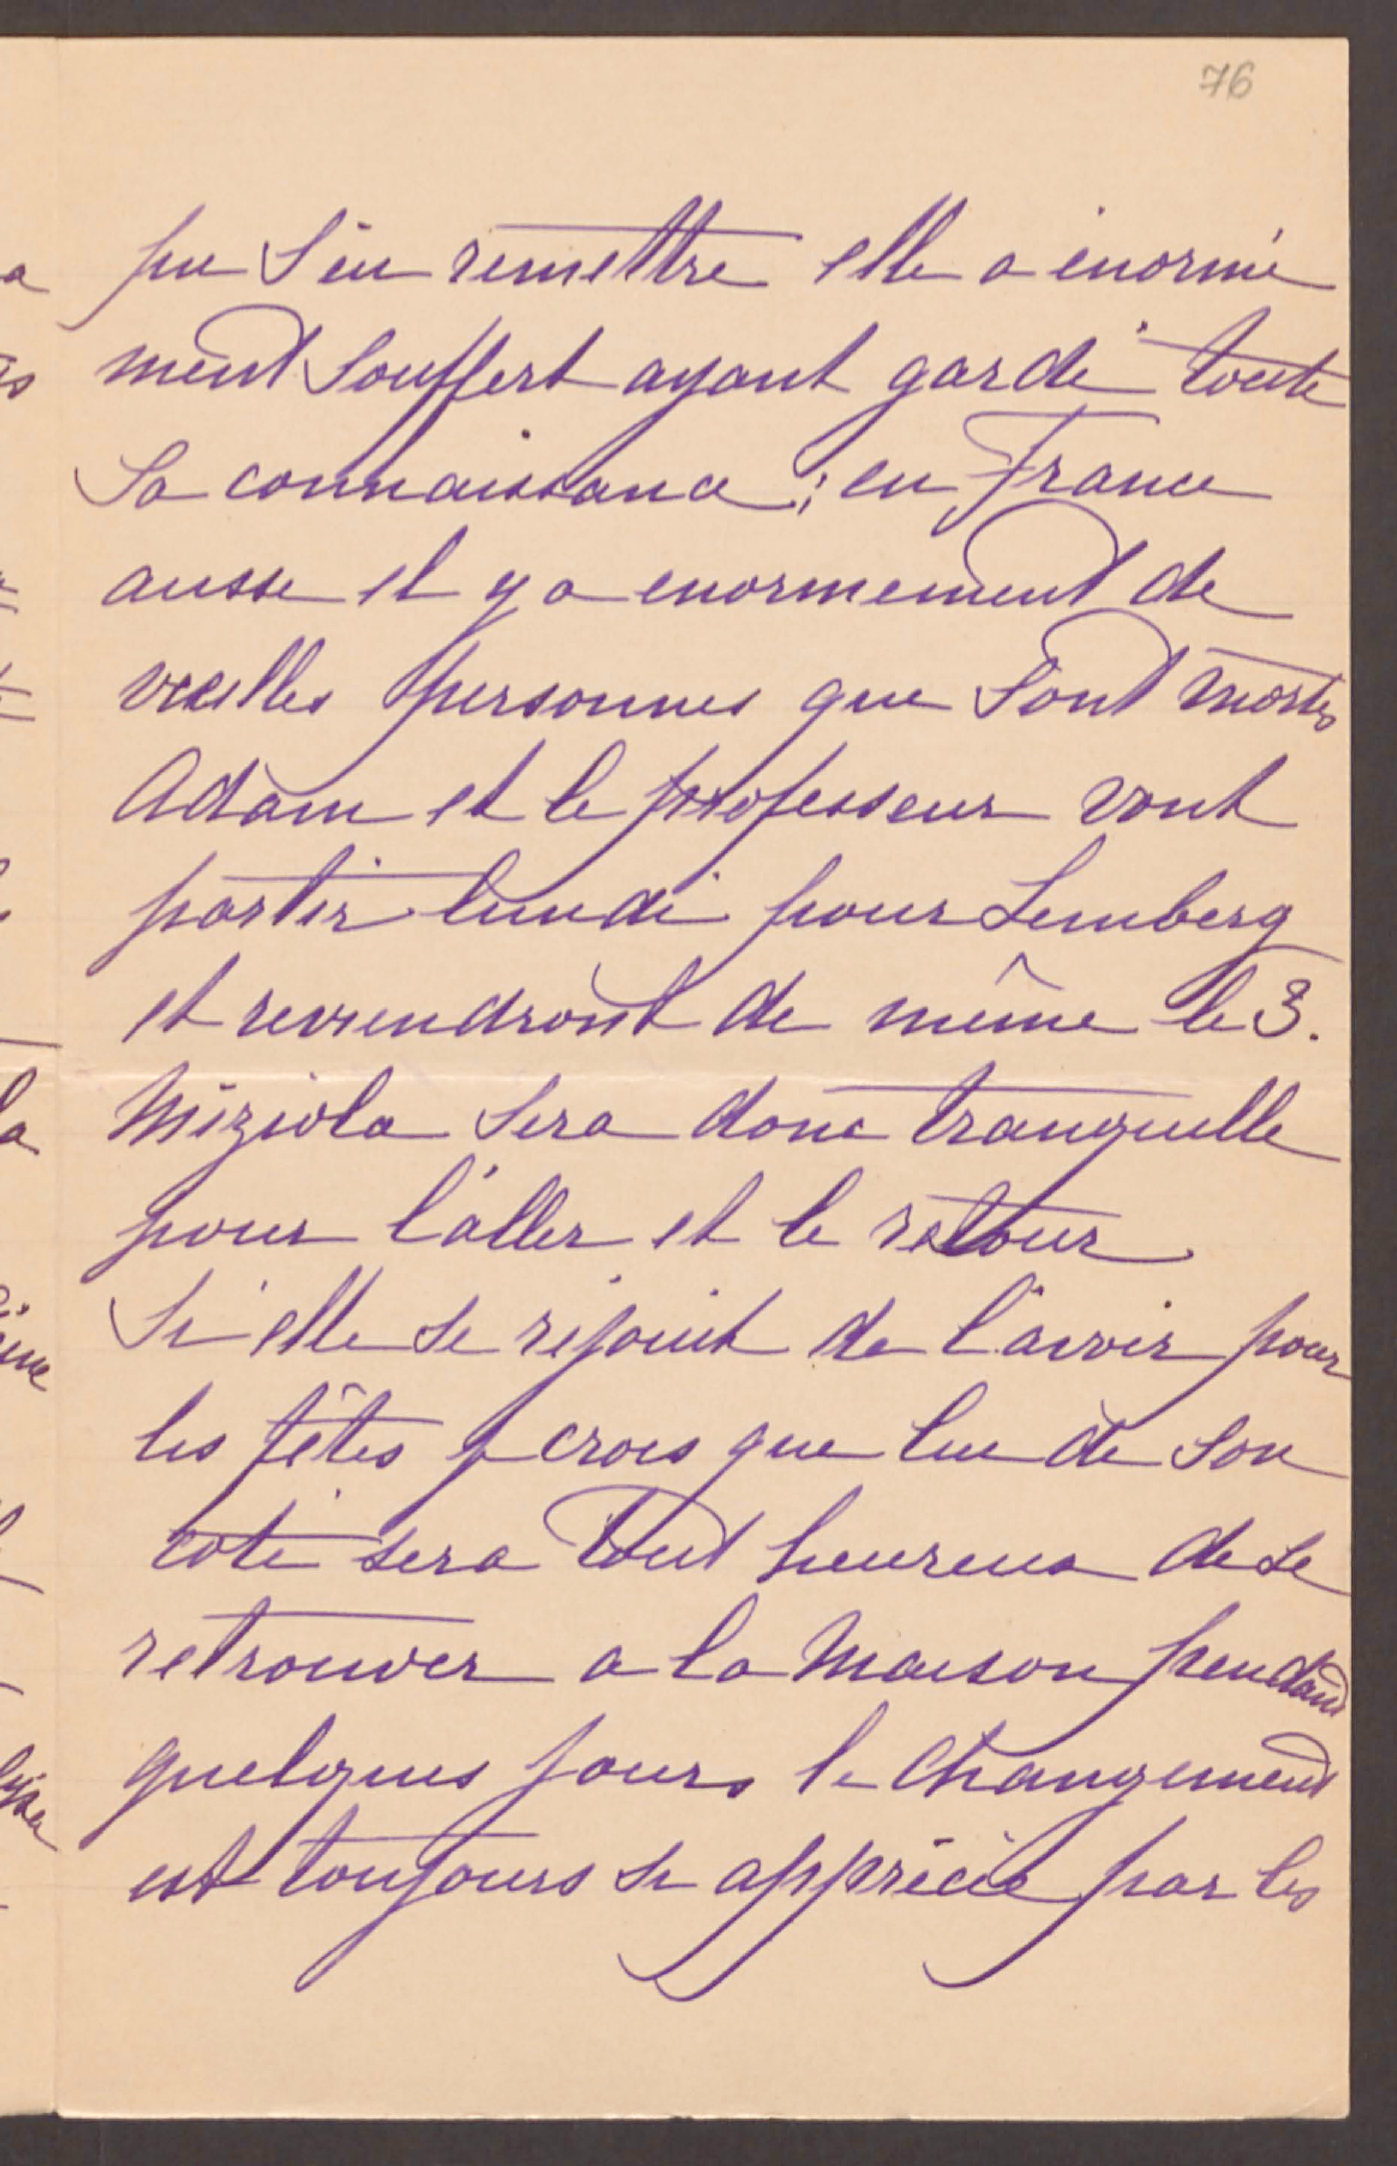 76
pu s'en remettre elle a énormé
ment souffert ayant gardé toute
sa connaissance ; en France
aussi il y a enormement de
vieilles personnes que sont mortes
Adam et le professeur vont
partir lundi pour Lemberg
et reviendront de même le 3.
Miziola sera donc tranquille
pour l'aller et le retour
Si elle se rejouit de l'avoir pour
les fêtes je crois que lui de son
coté sera tout heureux de se
retrouver a la maison pendant
quelques jours le changement
est toujours si apprécié par les